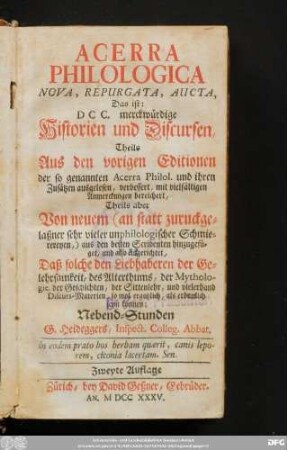 ACERRA
PHILOLOGICA
NOVA, REPURGATA, AUCTA,
Das ist:
DCC. merckwürdige
Historien und Discursen,
Theils
Aus den vorigen Editionen
der so genannten Acerra Philol. und ihren
Zusätzen ausgelesen, verbessert, mit vielfältigen
Anmerckungen bereichert,
Theils aber
Von neuem (an statt zuruckge-
laßner sehr vieler unphilologischer Schmie-
rereyen) aus den besten Scribenten hinzugefü-
get, und also
Daß solche den Liebhaberen der Ge-
lehrsamkeit, des Alterthums, der Mytholo-
gie, der Geschichten, der Sittenlehr, und vielerhand
Discurs-Materien, so wol ergötzlich, als erbaulich
seyn können:
Nebend-Stunden
G. Heideggers, Inspect. Colleg. Abbat.
in eodem prato bos herbam quærit, canis lepo-
rem, ciconia lacertam. Sen.
Zweyte Auflage
Zürich, bey David Geßner, Gebrüder.
AN. M DCC XXXV.